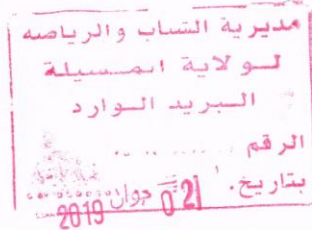 مديرية الشباب والرياضه
لولاية المسيلة
البريد الوارد
الرقم ..........
بتاريخ. 02 جوان 2019